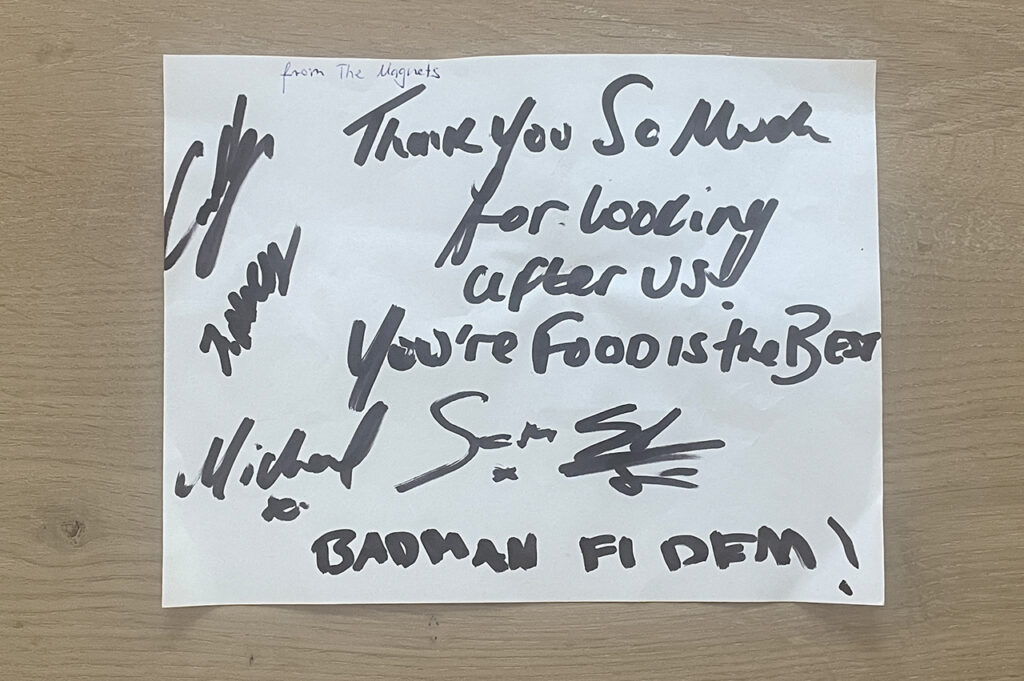 from The Magnets
Thank You So Much
for looking
after us!
You're Food is the Best
Michael Sam
BADMAN FI DEM!